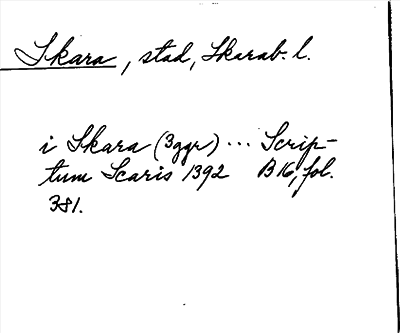 Skara, stad, Skarab. l.
i Skara (3ggr) ... Scrip-
tum Scaris 1392 B 16, fol.
381.